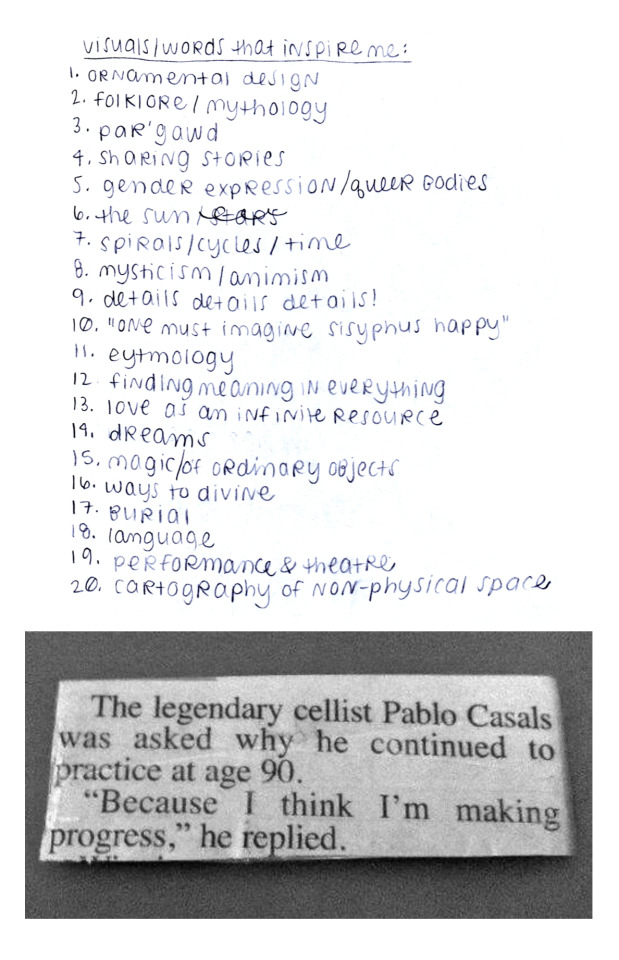 visuals/words that inspire me:
1. ornamental design
2. folklore/mythology
3. par'gawd
4. sharing stories
5. gender expression/queer bodies
6. the sun/stars
7. spirals/cycles/time
8. mysticism/animism
9. details details details!
10. "one must imagine sisyphus happy"
11. eytmology
12. finding meaning in everything
13. love as an infinite resource
14. dreams
15. magic/of ordinary objects
16. ways to divine
17. burial
18. language
19. performance & theatre
20. cartography of non-physical space
The legendary cellist Pablo Casals
was asked why he continued to
practice at age 90.
“Because I think I’m making
progress,” he replied.